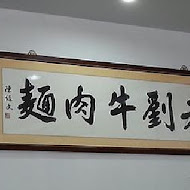 劉牛肉麵